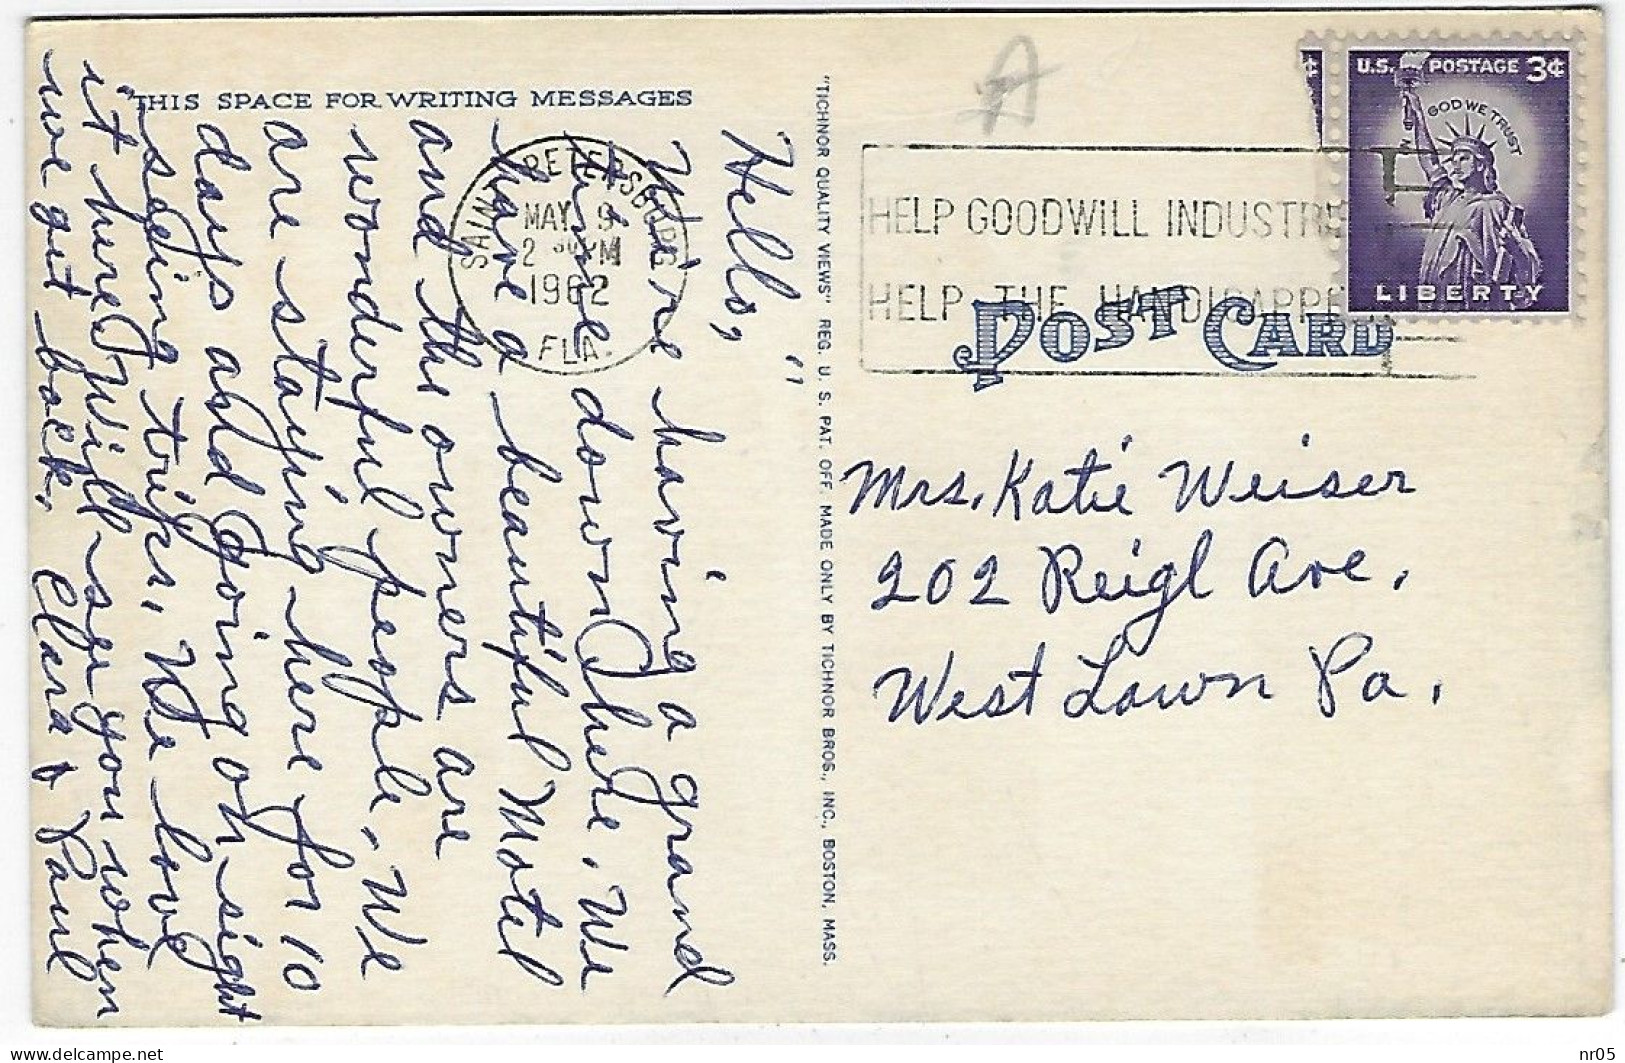 THIS SPACE FOR WRITING MESSAGES
Hello,
We're having a grand
time down here. We
have a beautiful Motel
and the owners are
wonderful people. We
are staying here for 10
days and going on sight
seeing trips. We love
it here. Will see you when
we get back.
Clara & Paul
SAINT PETERSBURG
MAY 9
2 PM
1962
FLA.
"TICHNOR QUALITY VIEWS" REG. U. S. PAT. OFF. MADE ONLY BY TICHNOR BROS., INC., BOSTON, MASS.
A
HELP GOODWILL INDUSTRIE
HELP THE HANDICAPPE
POST CARD
¢
U.S. POSTAGE 3¢
IN GOD WE TRUST
LIBERTY
Mrs. Katie Weiser
202 Reigl Ave.
West Lawn Pa.
delcampe.net
nr05